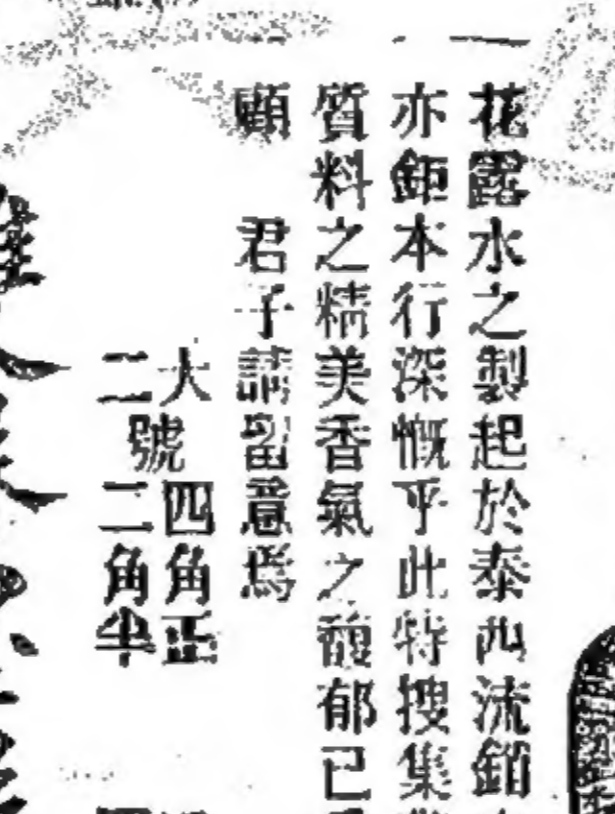 花露水之製起於泰西流銷
亦鉅本行深慨乎此特搜集
質料之精美香氣之馥郁已
顧君子請留意焉
大號四角正
二號二角半